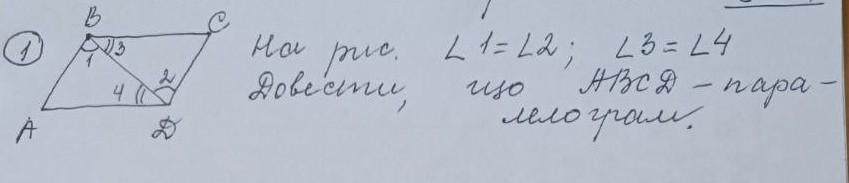 ① B C
1 3 2
4
A D
На рис. ∠1=∠2; ∠3=∠4
Довести, що ABCD – пара-
лелограм.